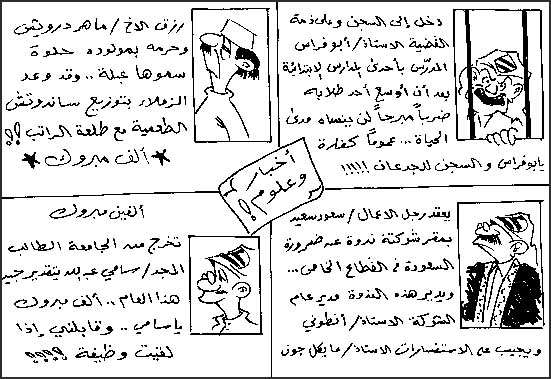 دخل إلى السجن وعلى ذمة
القضية الاستاذ/ أبو فراس
المدرّس بأحدى المدارس الابتدائية
بعد أن أوسع أحد طلابه
ضرباً مبرحاً لن ينساه مدى
الحياة .. عموماً كفارة
يا بو فراس و السجن للجدعان !!!!!
رزق الاخ / ماهر درويش
وحرمه بمولوده حلوة
سموها عبلة .. وقد وعد
الزملاء بتوزيع ساندوتش
الطعمية مع طلعة الراتب ؟!
* ألف مبروك *
أخبار
وعلوم !؟
يعقد رجل الاعمال / سعود سعيد
بمقر شركته ندوة عن ضرورة
السعودة في القطاع الخاص ...
ويدير هذه الندوة مدير عام
الشركة الاستاذ/ أنطوني
ويجيب على الاستفسارات الاستاذ/ مايكل جون
ألفين مبروك
تخرج من الجامعة الطالب
المجد/ سامي عبدالله بتقدير جيد
هذا العام .. ألف مبروك
يا سامي .. وقابلني إذا
لقيت وظيفة ؟؟؟؟